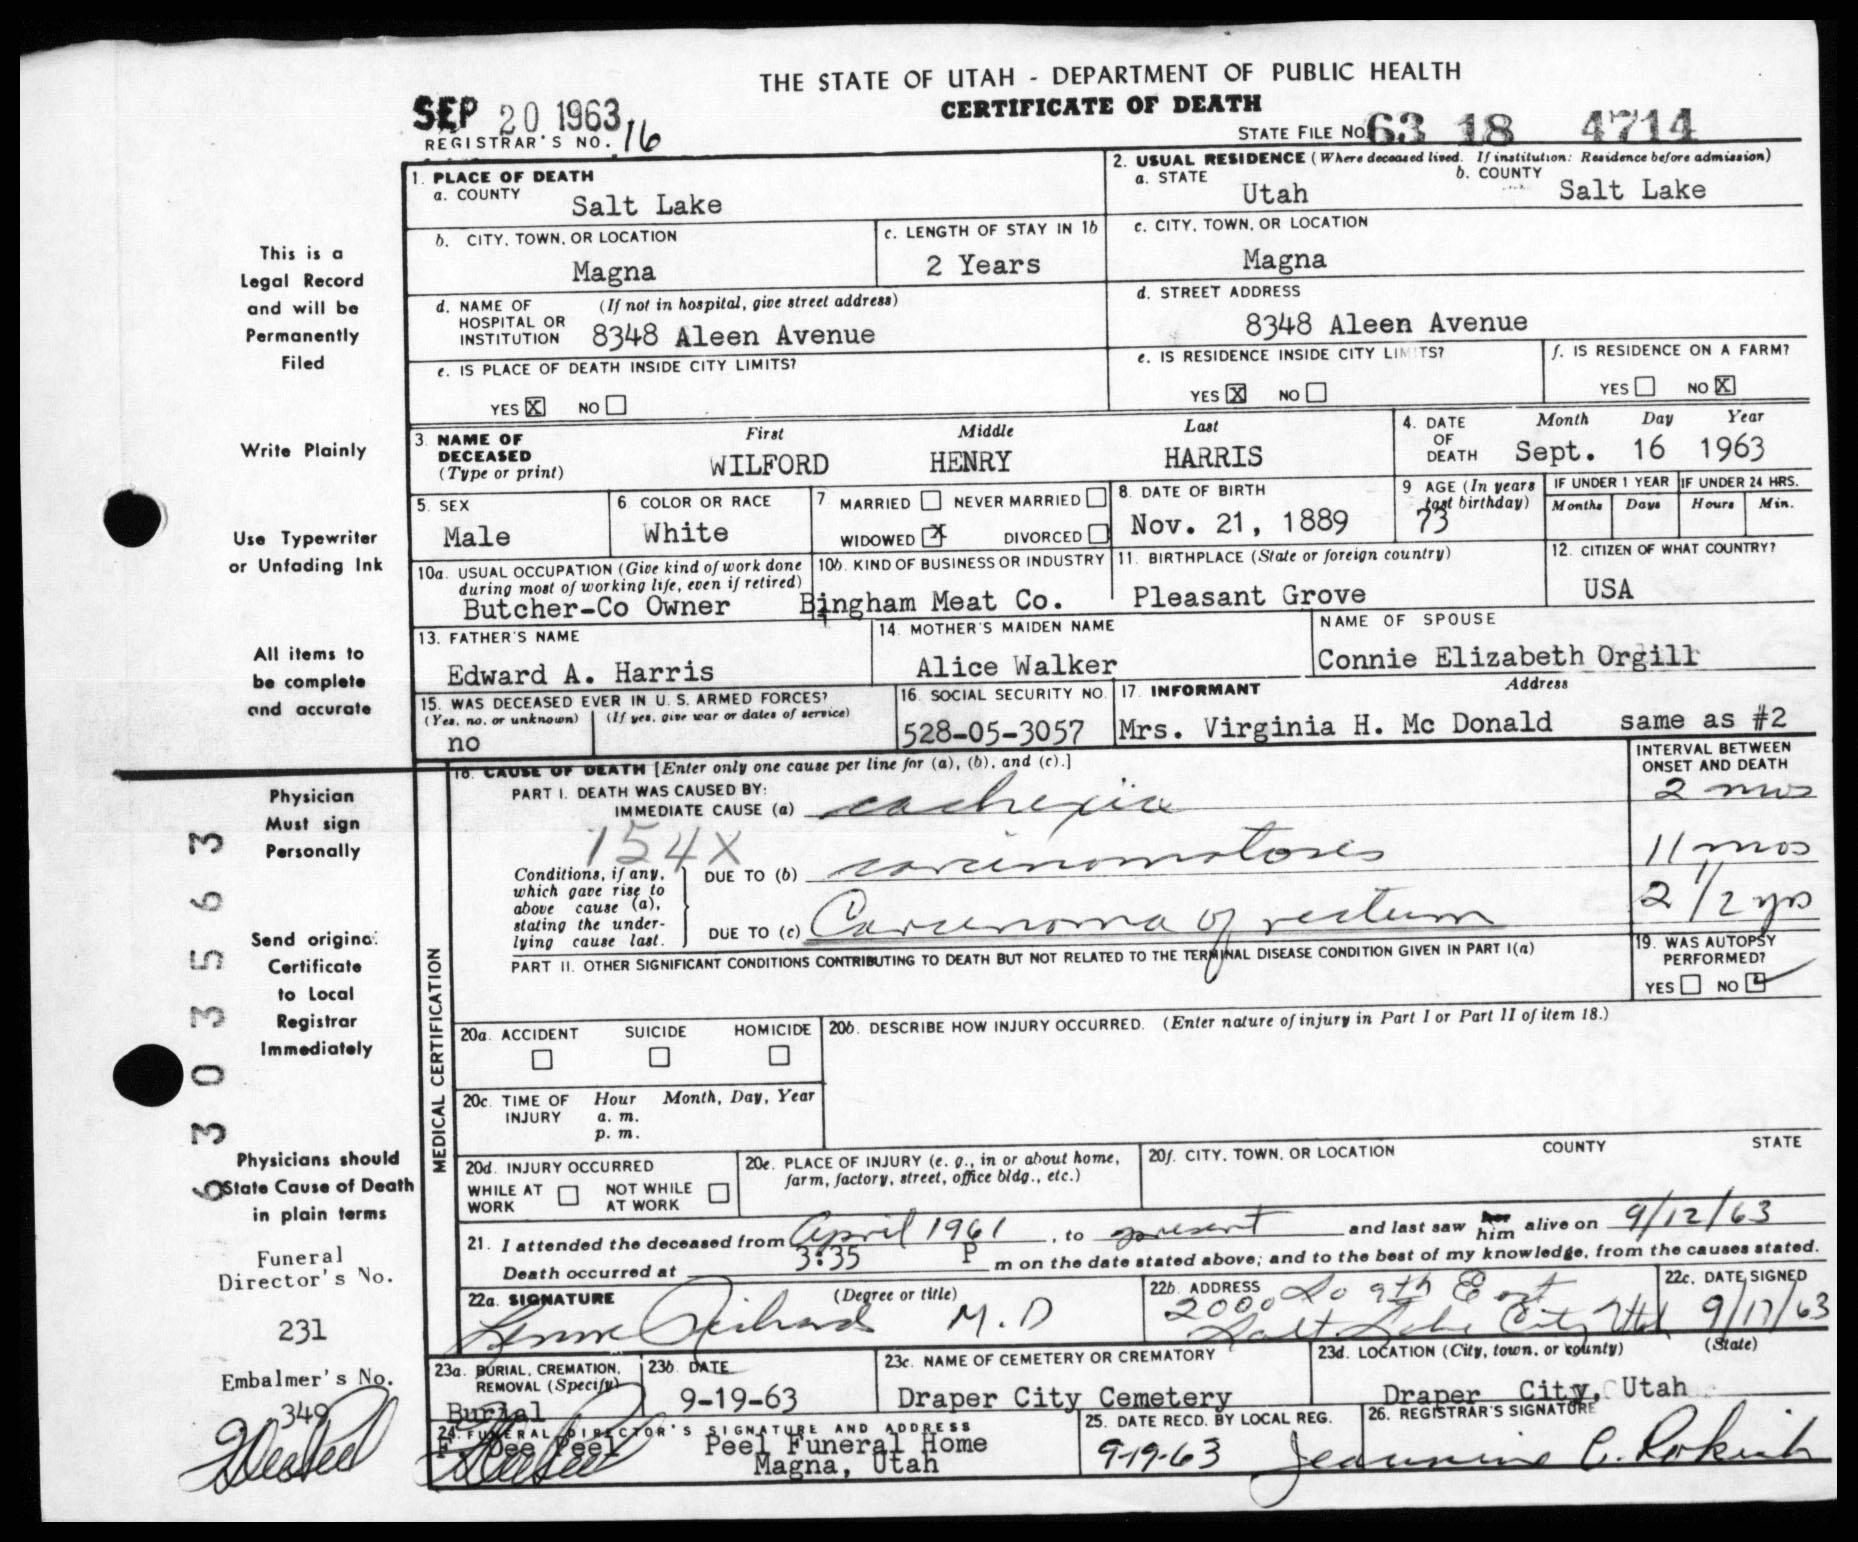 THE STATE OF UTAH - DEPARTMENT OF PUBLIC HEALTH
CERTIFICATE OF DEATH
SEP 20 1963
REGISTRAR'S NO. 16
STATE FILE No. 63 18 4714
1. PLACE OF DEATH
a. COUNTY
Salt Lake
2. USUAL RESIDENCE (Where deceased lived. If institution: Residence before admission)
a. STATE
Utah
b. COUNTY
Salt Lake
b. CITY, TOWN, OR LOCATION
Magna
c. LENGTH OF STAY IN 1b
2 Years
c. CITY, TOWN, OR LOCATION
Magna
d. NAME OF HOSPITAL OR INSTITUTION
(If not in hospital, give street address)
8348 Aleen Avenue
d. STREET ADDRESS
8348 Aleen Avenue
e. IS PLACE OF DEATH INSIDE CITY LIMITS?
YES X NO
e. IS RESIDENCE INSIDE CITY LIMITS?
YES X NO
f. IS RESIDENCE ON A FARM?
YES NO X
3. NAME OF DECEASED
(Type or print)
First Middle Last
WILFORD HENRY HARRIS
4. DATE OF DEATH
Month Day Year
Sept. 16 1963
5. SEX
Male
6 COLOR OR RACE
White
7 MARRIED NEVER MARRIED
WIDOWED X DIVORCED
8. DATE OF BIRTH
Nov. 21, 1889
9 AGE (In years last birthday)
73
IF UNDER 1 YEAR
Months Days
IF UNDER 24 HRS.
Hours Min.
10a. USUAL OCCUPATION (Give kind of work done
during most of working life, even if retired)
Butcher-Co Owner
10b. KIND OF BUSINESS OR INDUSTRY
Bingham Meat Co.
11. BIRTHPLACE (State or foreign country)
Pleasant Grove
12. CITIZEN OF WHAT COUNTRY?
USA
13. FATHER'S NAME
Edward A. Harris
14. MOTHER'S MAIDEN NAME
Alice Walker
NAME OF SPOUSE
Connie Elizabeth Orgill
15. WAS DECEASED EVER IN U. S. ARMED FORCES?
(Yes, no, or unknown) (If yes, give war or dates of service)
no
16. SOCIAL SECURITY NO.
528-05-3057
17. INFORMANT Address
Mrs. Virginia H. Mc Donald same as #2
18. CAUSE OF DEATH [Enter only one cause per line for (a), (b), and (c).]
INTERVAL BETWEEN
ONSET AND DEATH
PART I. DEATH WAS CAUSED BY:
IMMEDIATE CAUSE (a) cachexia 2 mos
154X
Conditions, if any, which gave rise to above cause (a), stating the underlying cause last.
DUE TO (b) carcinomatosis 11 mos
DUE TO (c) Carcinoma of rectum 2 1/2 yrs
PART II. OTHER SIGNIFICANT CONDITIONS CONTRIBUTING TO DEATH BUT NOT RELATED TO THE TERMINAL DISEASE CONDITION GIVEN IN PART I(a)
19. WAS AUTOPSY PERFORMED?
YES NO
MEDICAL CERTIFICATION
20a. ACCIDENT SUICIDE HOMICIDE
20b. DESCRIBE HOW INJURY OCCURRED. (Enter nature of injury in Part I or Part II of item 18.)
20c. TIME OF INJURY
Hour Month, Day, Year
a. m.
p. m.
20d. INJURY OCCURRED
WHILE AT WORK NOT WHILE AT WORK
20e. PLACE OF INJURY (e. g., in or about home,
farm, factory, street, office bldg., etc.)
20f. CITY, TOWN, OR LOCATION COUNTY STATE
21. I attended the deceased from April 1961, to present and last saw her him alive on 9/12/63
Death occurred at 3:35 P m on the date stated above; and to the best of my knowledge, from the causes stated.
22a. SIGNATURE (Degree or title)
Richards M.D
22b. ADDRESS
2000 So 9th East
Salt Lake City Utah
22c. DATE SIGNED
9/17/63
23a. BURIAL, CREMATION, REMOVAL (Specify)
Burial
23b. DATE
9-19-63
23c. NAME OF CEMETERY OR CREMATORY
Draper City Cemetery
23d. LOCATION (City, town, or county) (State)
Draper City, Utah
24. FUNERAL DIRECTOR'S SIGNATURE AND ADDRESS
F. Dee Peel Peel Funeral Home
Magna, Utah
25. DATE RECD. BY LOCAL REG.
9-19-63
26. REGISTRAR'S SIGNATURE
Jeannine C.
This is a
Legal Record
and will be
Permanently
Filed
Write Plainly
Use Typewriter
or Unfading Ink
All items to
be complete
and accurate
Physician
Must sign
Personally
Send original
Certificate
to Local
Registrar
Immediately
Physicians should
State Cause of Death
in plain terms
Funeral
Director's No.
231
Embalmer's No.
349
6303563